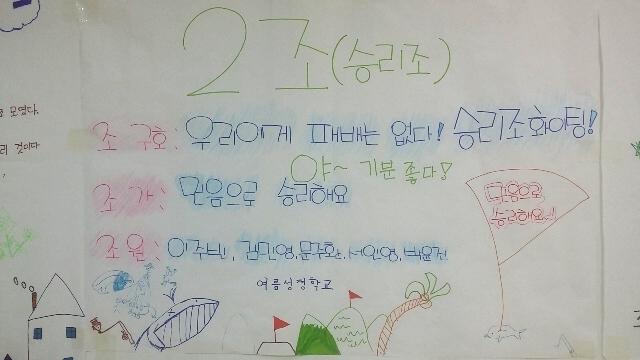 2조(승리조)
모였다.
조 구호: 우리에게 패배는 없다! 승리조 화이팅!
리 것이다
야~ 기분 좋다!
조 가: 믿음으로 승리해요
믿음으로
승리해요
조 원: 이주빈, 김민영, 문주환, 서인영, 박윤지
여름성경학교